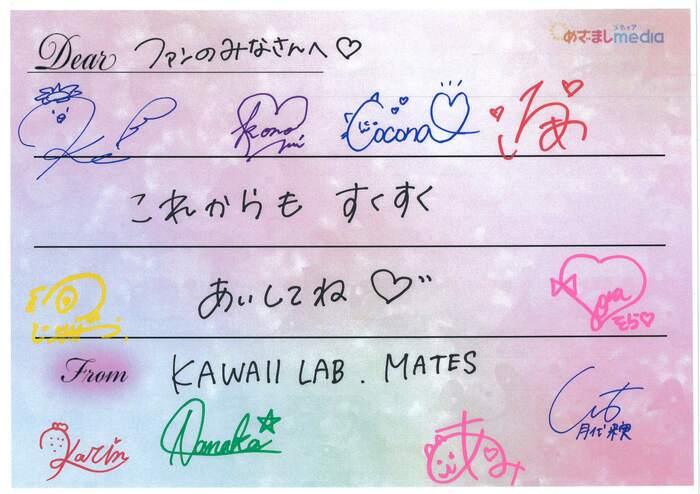 めざましmedia
メディア
Dear ファンのみなさんへ♡
Kono
Cocona
これからも すくすく
あいしてね♡
そら♡
From KAWAII LAB. MATES
月代
Karin
Nanaka
あみ